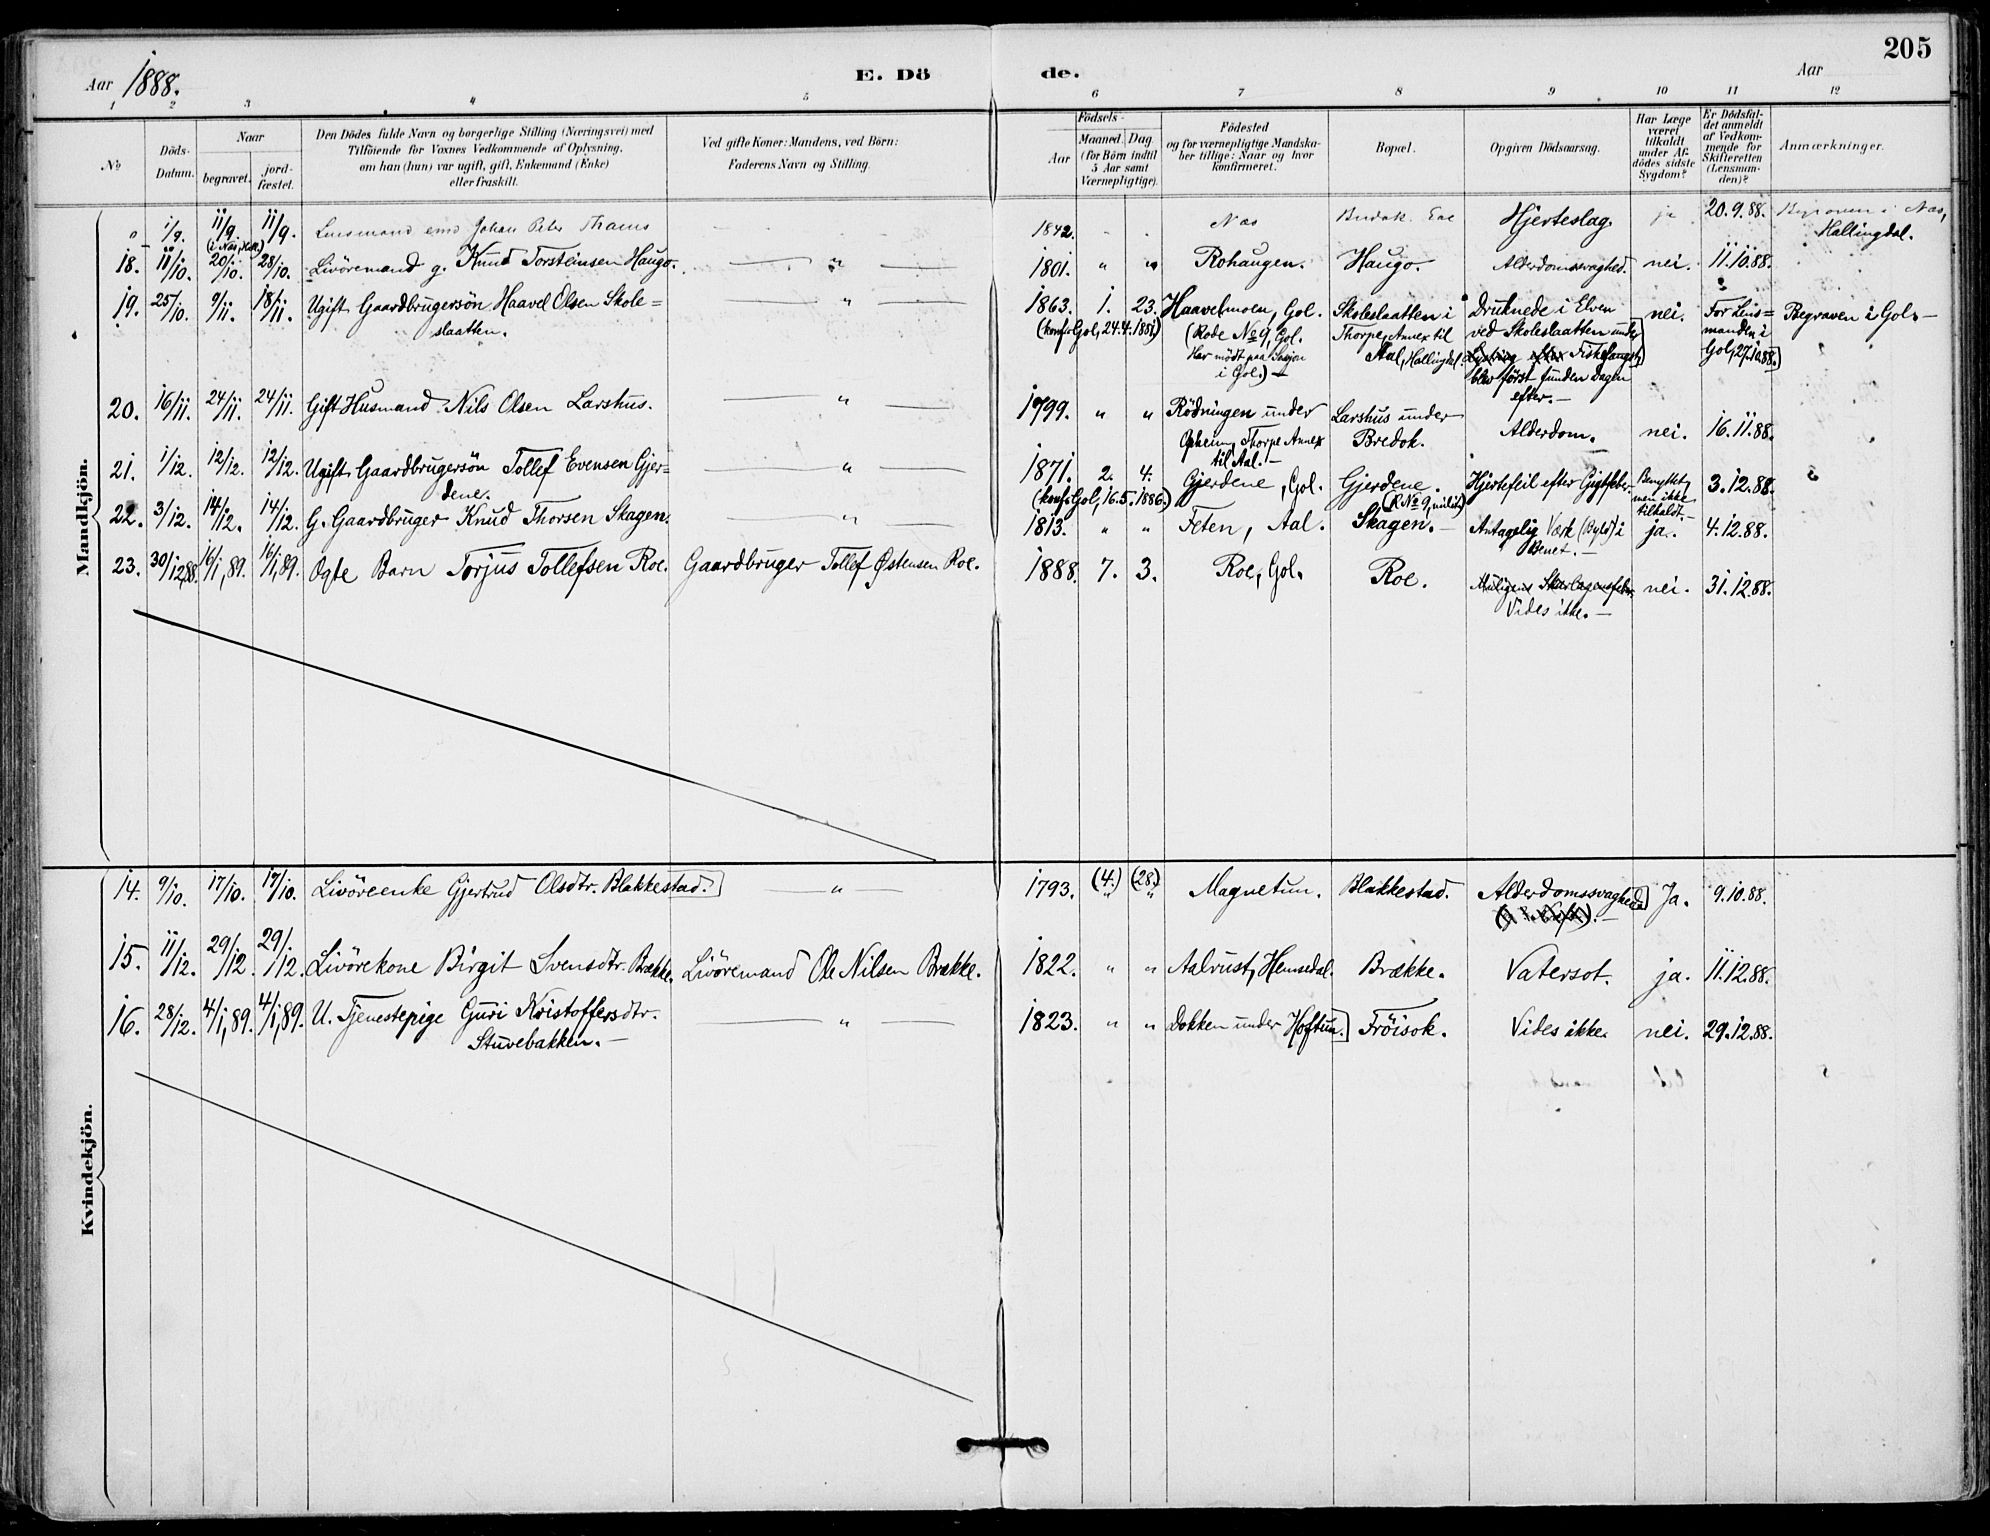 205
Aar 1888. E. Dö de. Aar
1 2 3 4 5 6 7 8 9 10 11 12
No
Döds-Datum.
Naar
begravet.
jordfæstet.
Den Dödes fulde Navn og borgerlige Stilling (Næringsvei) med
Tilföiende for Voxnes Vedkommende af Oplysning,
om han (hun) var ugift, gift, Enkemand (Enke)
eller fraskilt.
Ved gifte Koner: Mandens, ved Börn:
Faderens Navn og Stilling.
Födsels-
Aar
Maaned. Dag.
(for Börn indtil
5 Aar samt
Værnepligtige).
Födested
og for værnepligtige Mandska-
ber tillige: Naar og hvor
konfirmeret.
Bopæl.
Opgiven Dödsaarsag.
Har Læge
været
tilkaldt
under Af-
dödes sidste
Sygdom?
Er Dödsfal-
det anmeldt
af Vedkom-
mende for
Skifteretten
(Lensman-
den)?
Anmærkninger.
Mandkjön.
1/9. 11/9. 11/9. Lensmand Johan Peter Thams 1842. Næs Hjerteslag. ja 20.9.88. Begraven i Næs,
Hallingdal.
18. 11/10. 20/10. 28/10. Livöremand g. Knud Torsteinsen Haugo. — " — 1801. " " Rohaugen. Haugo. Alderdomssvaghed. nei. 11.10.88.
19. 25/10. 9/11. 18/11. Ugift Gaardbrugersön Haavel Olsen Skole= — " — 1863. 1. 23. Haavelmoen, Gol. Skoleslaatten i Druknede i Elven nei. For Lens= Begraven i Gol.—
slaatten. (Rode No 9, Gol. Thorpe, Annex til ved Skoleslaatten under manden i
Har mödt paa Sesjon Aal, Hallingdal. Fiskefangst, Gol, 27.10.88.
i Gol.) — blev först funden Dagen
efter.—
20. 16/11. 24/11. 24/11. Gift Husmand Nils Olsen Larshus. — " — 1799. " " Rödningen under Larshus under Alderdom. nei. 16.11.88.
Opheim, Thorpe Annex Bredok.
til Aal.—
21. 1/12. 12/12. 12/12. Ugift Gaardbrugersön Tollef Evensen Gjer= — " — 1871. 2. 4. Gjerdene, Gol. Gjerdene. Hjertefeil efter Gigtfeber Benyttet, 3.12.88.
dene. (konf. Gol, 16.5.1886.) men ikke
tilkaldt.—
22. 3/12. 14/12. 14/12. G. Gaardbruger Knud Thorsen Skagen. — " — 1813. " " Feten, Aal. Skagen.— Antagelig Værk (Byld) i ja. 4.12.88.
Benet.—
23. 30/12,88. 16/1,89. 16/1,89. Ægte Barn Torjus Tollefsen Roe. Gaardbruger Tollef Østensen Roe. 1888. 7. 3. Roe, Gol. Roe. Muligens Skarlagensfeber nei. 31.12.88.
Vides ikke.—
Kvindekjön.
14. 9/10. 17/10. 17/10. Livöreenke Gjertrud Olsdtr. Blakkestad. — " — 1793. (4.) (28.) Magnetun. Blakkestad. Alderdomssvaghed. Ja. 9.10.88.
15. 11/12. 29/12. 29/12. Livörekone Birgit Svensdtr. Brække. Livöremand Ole Nilsen Brække. 1822. " " Aalrust, Hemsedal. Brække. Vatersot. ja. 11.12.88.
16. 28/12. 4/1,89. 4/1,89. U. Tjenestepige Guri Kristoffersdtr. — " — 1823. " " Dokken under Hoftun. Fröisok. Vides ikke. nei. 29.12.88.
Stuvebakken.—